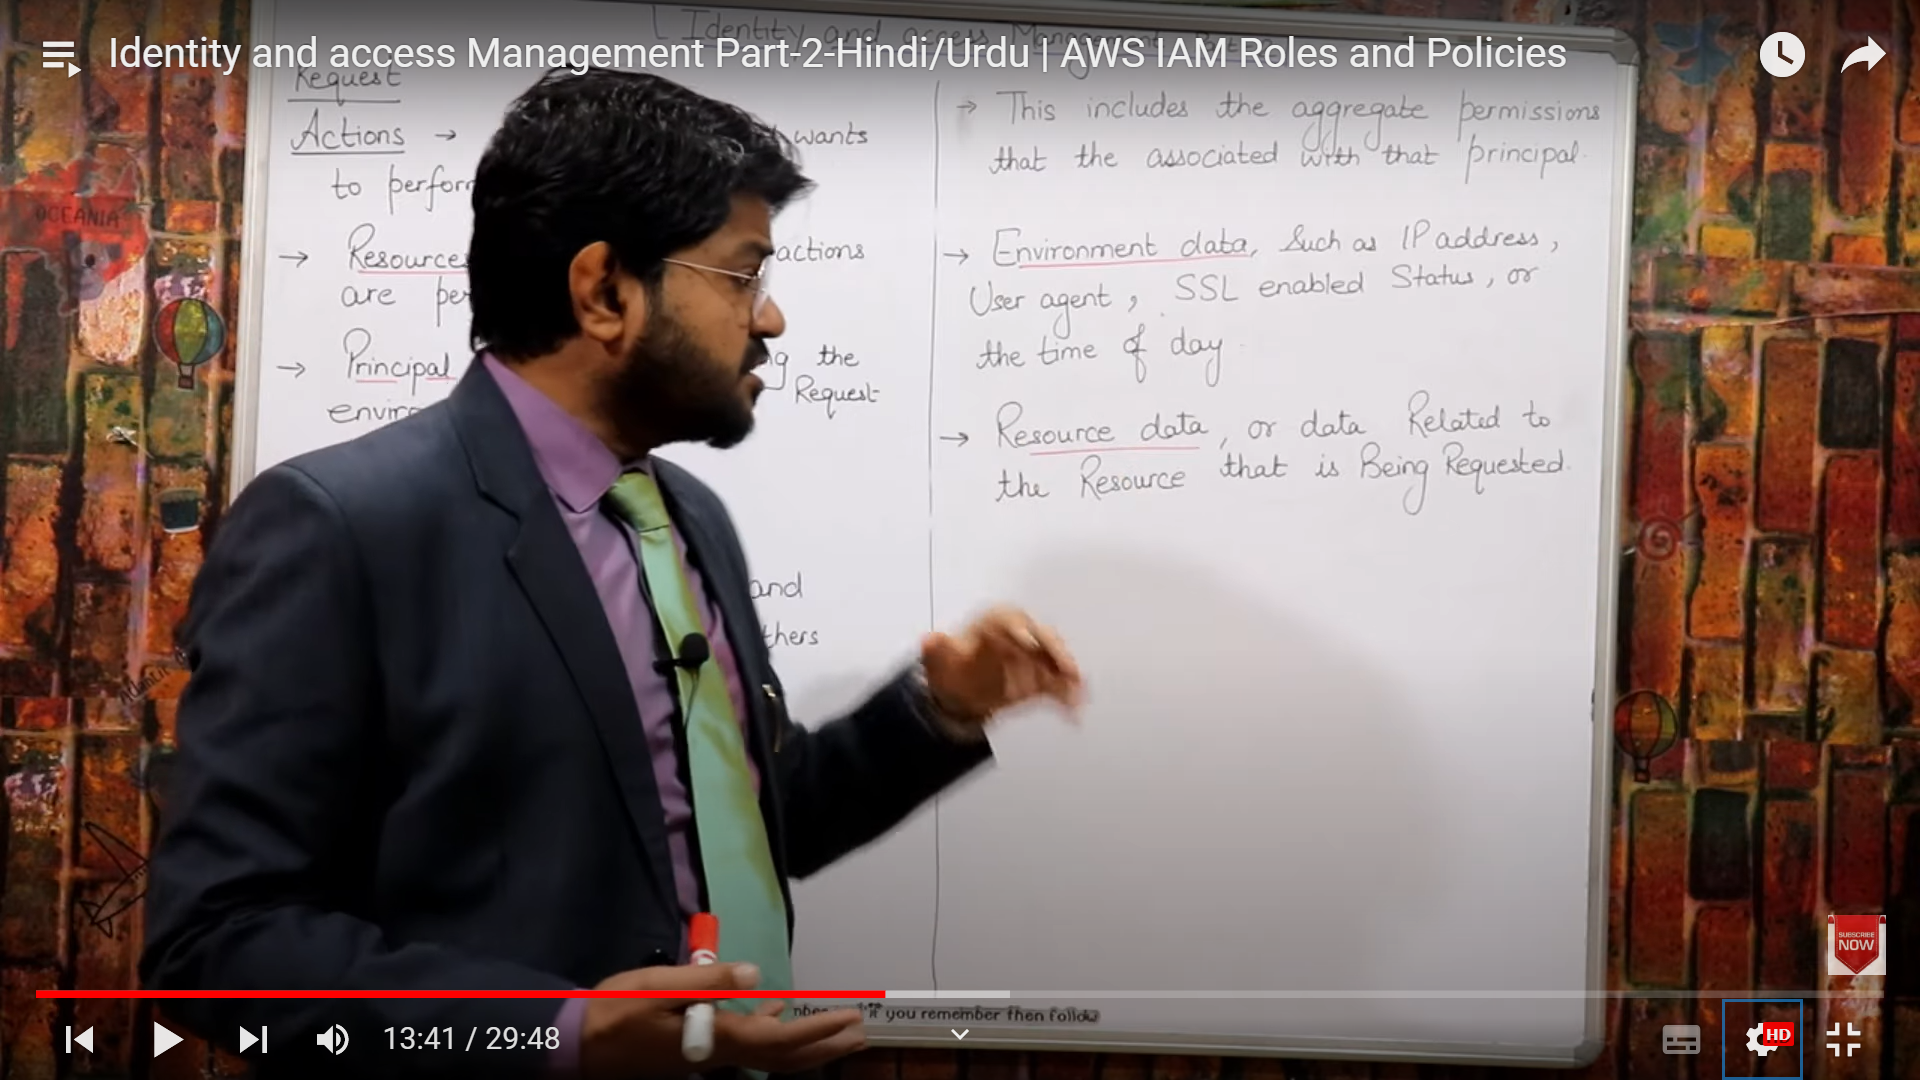 Identity and access Management Part-2-Hindi/Urdu | AWS IAM Roles and Policies
Identity and access Management
Request
Actions → wants
to perform
→ Resources actions
are per
→ Principal ng the
Request
enviro
and
thers
→ This includes the aggregate permissions
that the associated with that principal.
→ Environment data, Such as IP address,
User agent, SSL enabled Status, or
the time of day
→ Resource data, or data Related to
the Resource that is Being Requested.
OCEANIA
if you remember then follow
SUBSCRIBE
NOW
13:41 / 29:48
HD